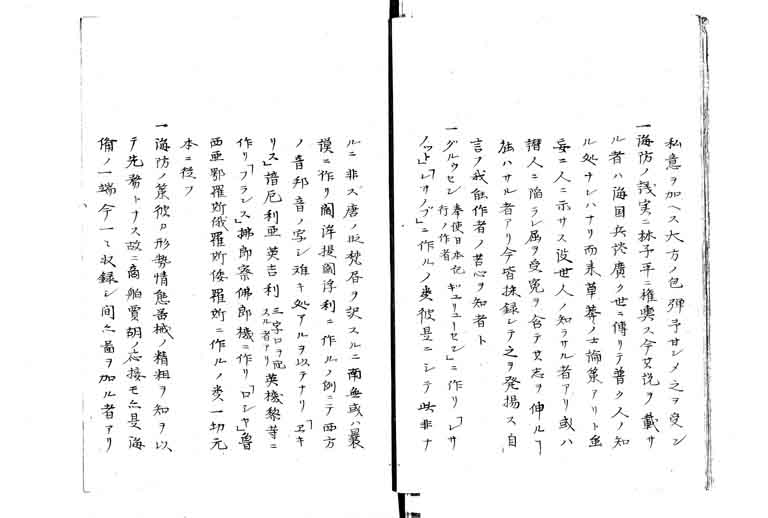 私意ヲ加ヘス大方ノ包弾予甘シメ之ヲ受ン
一海防ノ議実ニ林子平ニ権輿ス今其説ヲ載サ
ル者ハ海国兵談廣ク世ニ傳リテ普ク人ノ知
ル処ナレハナリ而来草莽ノ士偹策アリト雖
妄ニ人ニ示サス設世人ノ知ラサル者アリ或ハ
讒人ニ陥ラレ屈ヲ受冤ヲ含テ其志ヲ伸ル
能ハサル者アリ今皆採録シテ之ヲ発揚ス自
言フ我能作者ノ苦心ヲ知者ト
一グルウセン 奉使日本記行ノ作者 ギユリユーセン」ニ作リ「レサ
ノツト」レサノプ」ニ作ルノ類彼是ニシテ此非ナ
ルニ非ス唐ノ時梵唇ヲ訳スルニ南無或ハ曩
謨ニ作リ閻浮提閻浮利ニ作ルノ例ニテ西方
ノ音邦音ノ写シ難キ処アルヲ以テナリ「ヱキ
リス」諳厄利亜英吉利 三字口ヲ配スル者アリ 英機黎等ニ
作リ「フランス」拂郎察佛郎機ニ作リ「ロシヤ」魯
西亜鄂羅斯俄羅斯俊羅斯ニ作ルノ類一切元
本ニ従フ
一海防ノ策彼カ形勢情態器械ノ精粗ヲ知ヲ以
テ先務トナス故ニ商舶賈胡ノ応接モ亦是海
偹ノ一端今一々収録シ間亦畧ヲ加ル者アリ